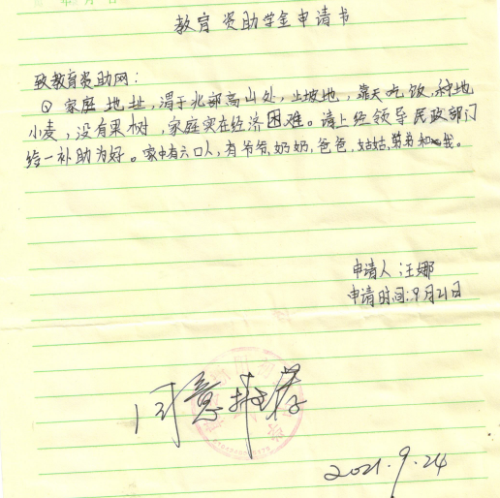 教育资助学金申请书
致教育资助网：
家庭地址，渭于北部高山处，坐坡地，靠天吃饭，种地
小麦，没有果树，家庭实在经济困难。请上经领导民政部门
给一补助为好。家中有六口人，有爷爷，奶奶，爸爸，姑姑，弟弟和我。
申请人：汪娜
申请时间：9月21日
同意推荐
2021.9.24